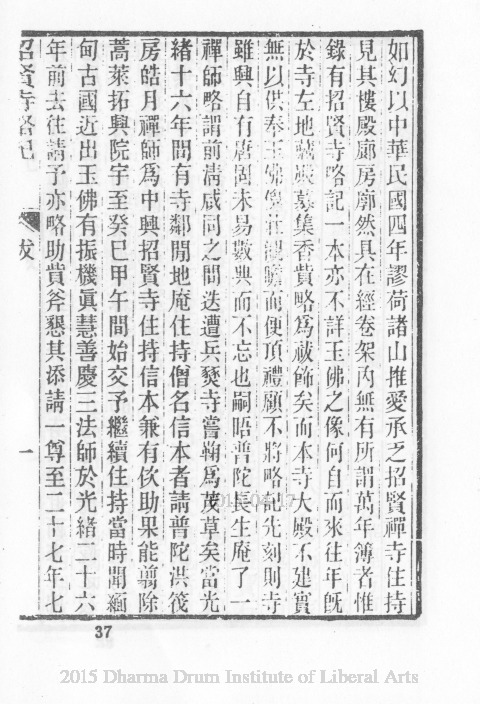 如幻以中華民國四年謬荷諸山推愛承乏招賢禪寺住持
見其樓殿廊房廓然具在經卷架內無有所謂萬年簿者惟
錄有招賢寺略記一本亦不詳玉佛之像何自而來往年旣
於寺左地藏殿募集香貲略為祓飾矣而本寺大殿不建實
無以供奉玉佛像壯觀瞻而便頂禮願不將略記先刻則寺
雖興自有唐固未易數典而不忘也嗣晤普陀長生庵了一
禪師略謂前淸咸同之間迭遭兵燹寺嘗鞠為茂草矣當光
緒十六年間有寺鄰閒地庵住持僧名信本者請普陀洪筏
房皓月禪師為中興招賢寺住持信本兼有佽助果能翦除
蒿萊拓興院宇至癸巳甲午間始交予繼續住持當時聞緬
甸古國近出玉佛有振機眞慧善慶三法師於光緒二十六
年前去往請予亦略助貲斧懇其添請一尊至二十七年七
招賢寺略記 跋 一
37
2015 Dharma Drum Institute of Liberal Arts